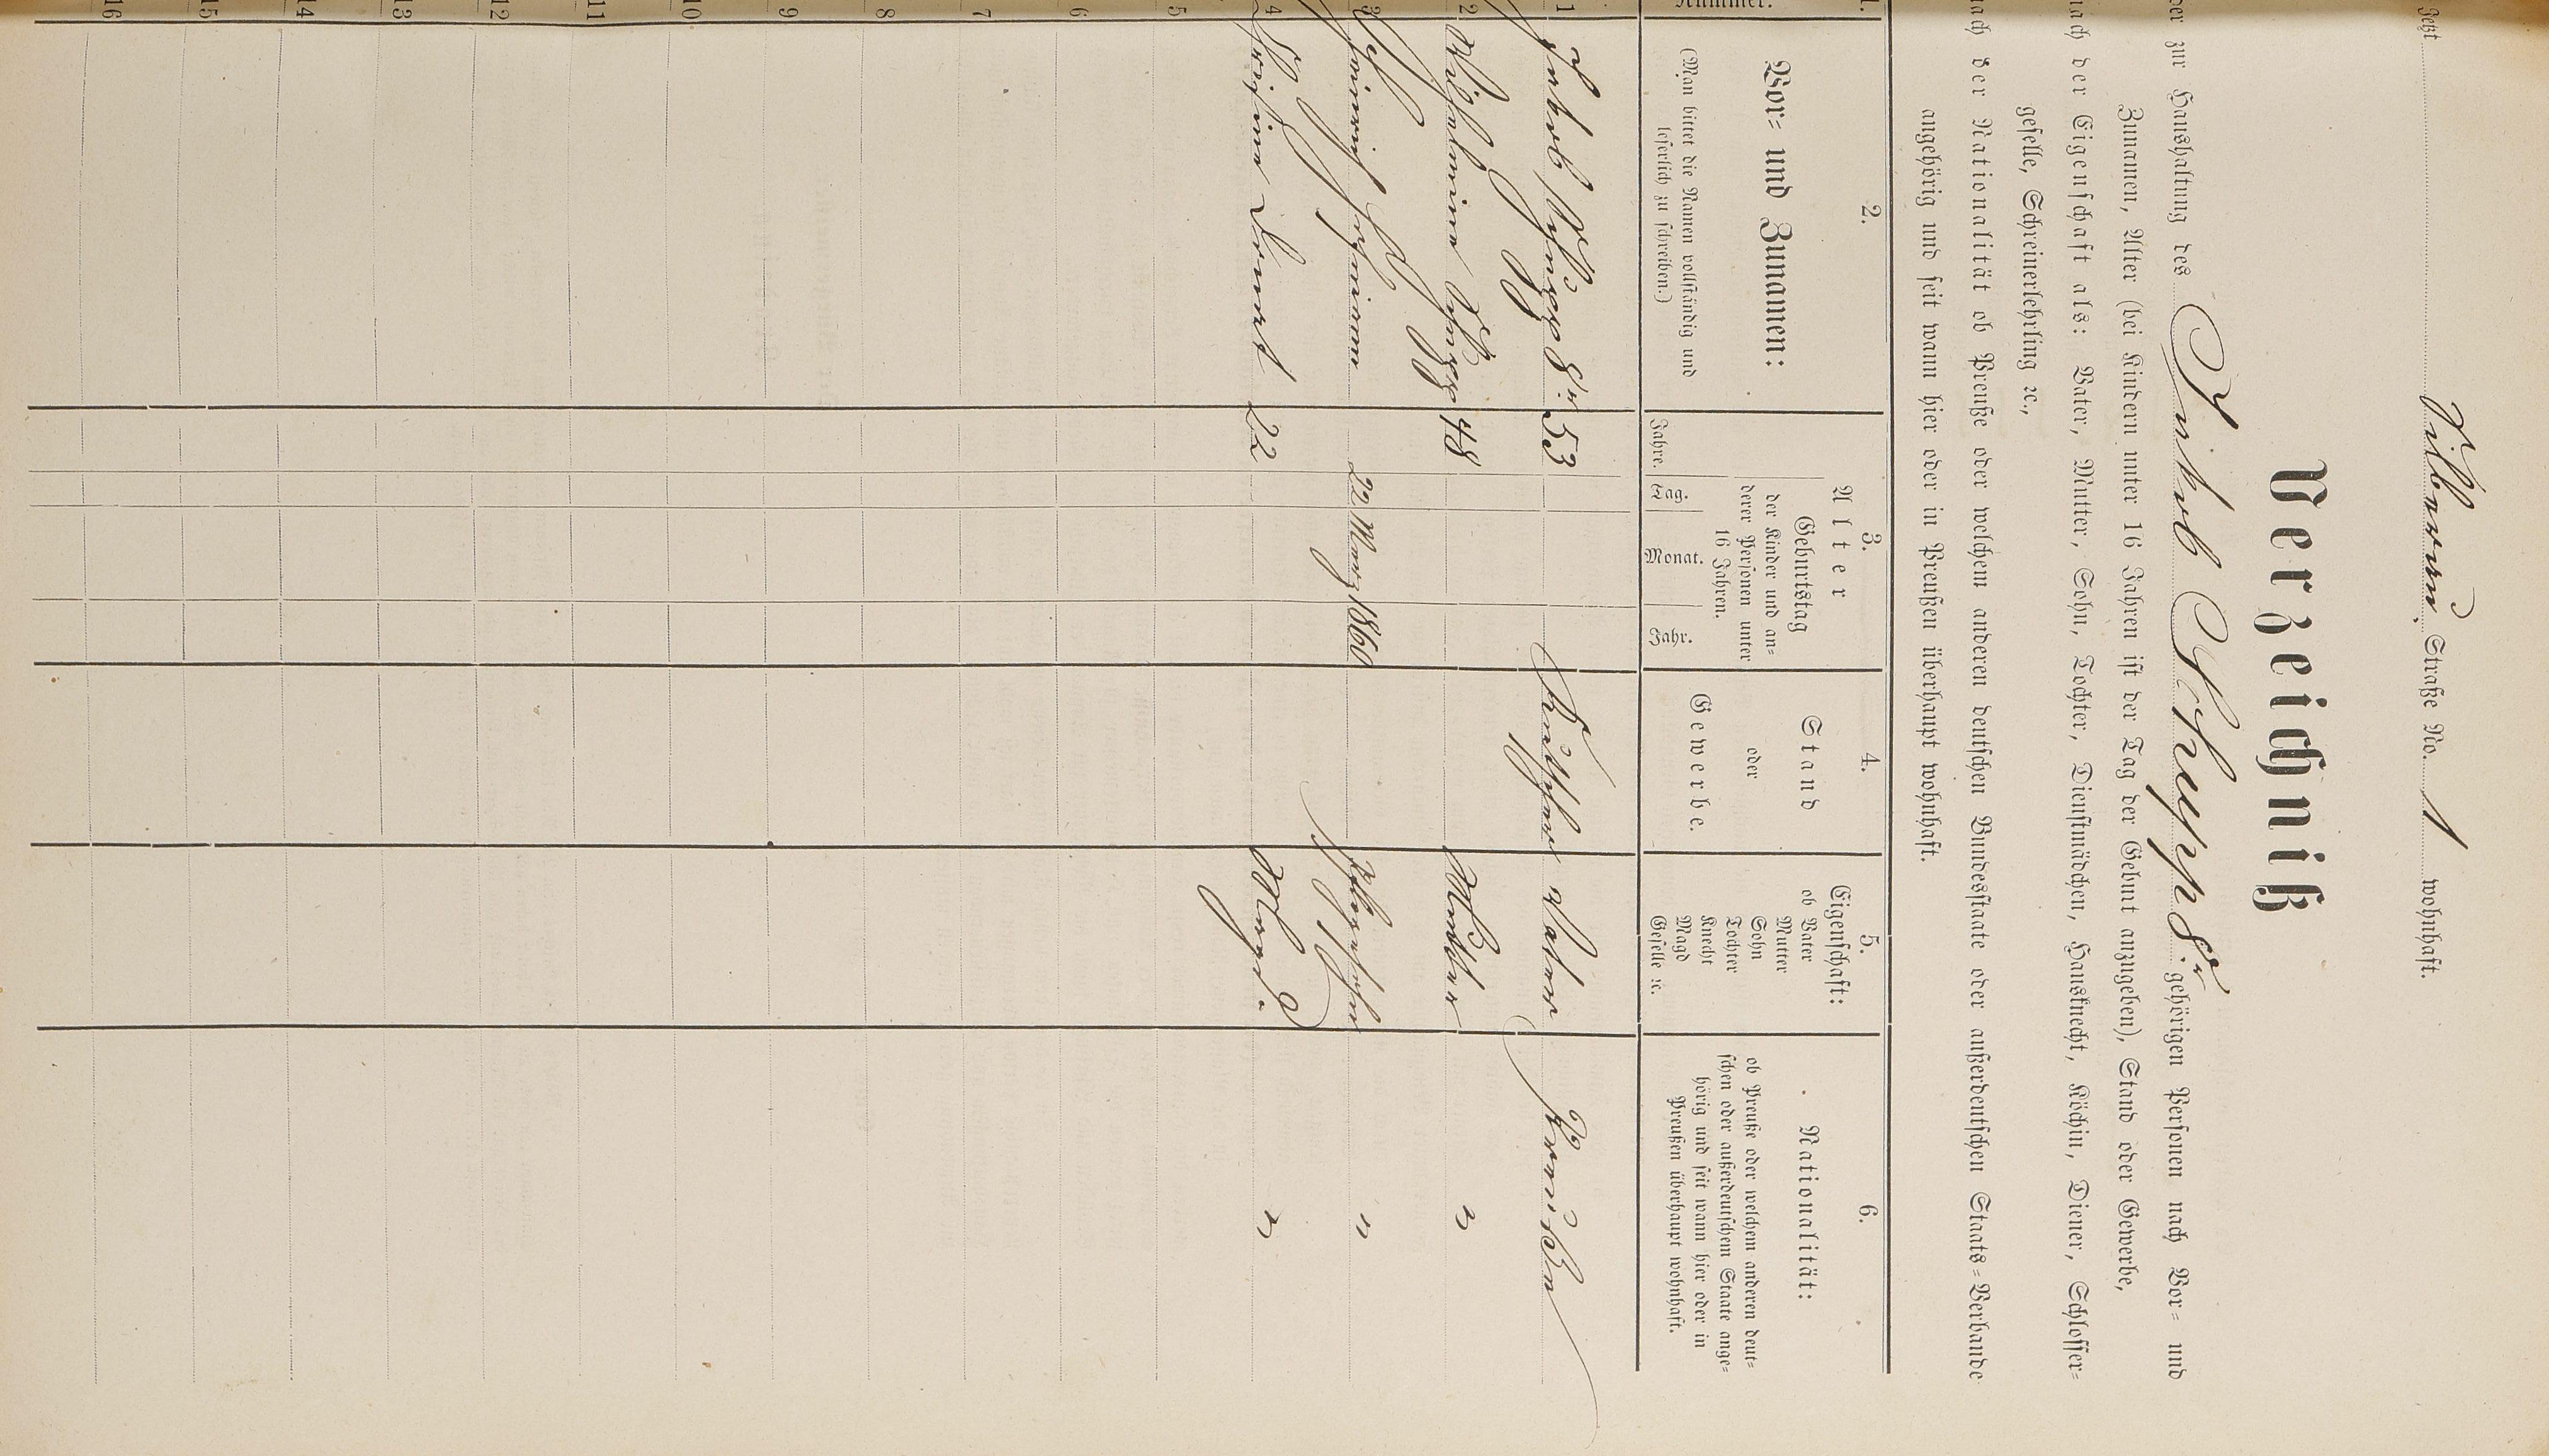 Jetzt Vilbeler Straße No. 1 wohnhaft.
Verzeichniß
der zur Haushaltung des Jakob Schupp Sr gehörigen Personen nach Vor- und
Zunamen, Alter (bei Kindern unter 16 Jahren ist der Tag der Geburt anzugeben), Stand oder Gewerbe,
nach der Eigenschaft als: Vater, Mutter, Sohn, Tochter, Dienstmädchen, Hausknecht, Köchin, Diener, Schlosser-
geselle, Schreinerlehrling ꝛc.,
nach der Nationalität ob Preuße oder welchem anderen deutschen Bundesstaate oder außerdeutschen Staats-Verbande
angehörig und seit wann hier oder in Preußen überhaupt wohnhaft.
1. 2. 3. 4. 5. 6.
Nummer.
Vor- und Zunamen:
(Man bittet die Namen vollständig und
leserlich zu schreiben.)
Alter
Geburtstag
der Kinder und an-
derer Personen unter
16 Jahren.
Jahre. Tag. Monat. Jahr.
Stand
oder
Gewerbe.
Eigenschaft:
ob Vater
Mutter
Sohn
Tochter
Knecht
Magd
Geselle ꝛc.
Nationalität:
ob Preuße oder welchem anderen deut-
schen oder außerdeutschem Staate ange-
hörig und seit wann hier oder in
Preußen überhaupt wohnhaft.
1 Jakob Schupp Sr 53 Vater Preußen
2 Wilhelmine Schupp 48 Mutter "
3 Heinrich 22 März 1860 Pflegesohn "
4 22 Magd. "
5
6
7
8
9
10
11
12
13
14
15
16